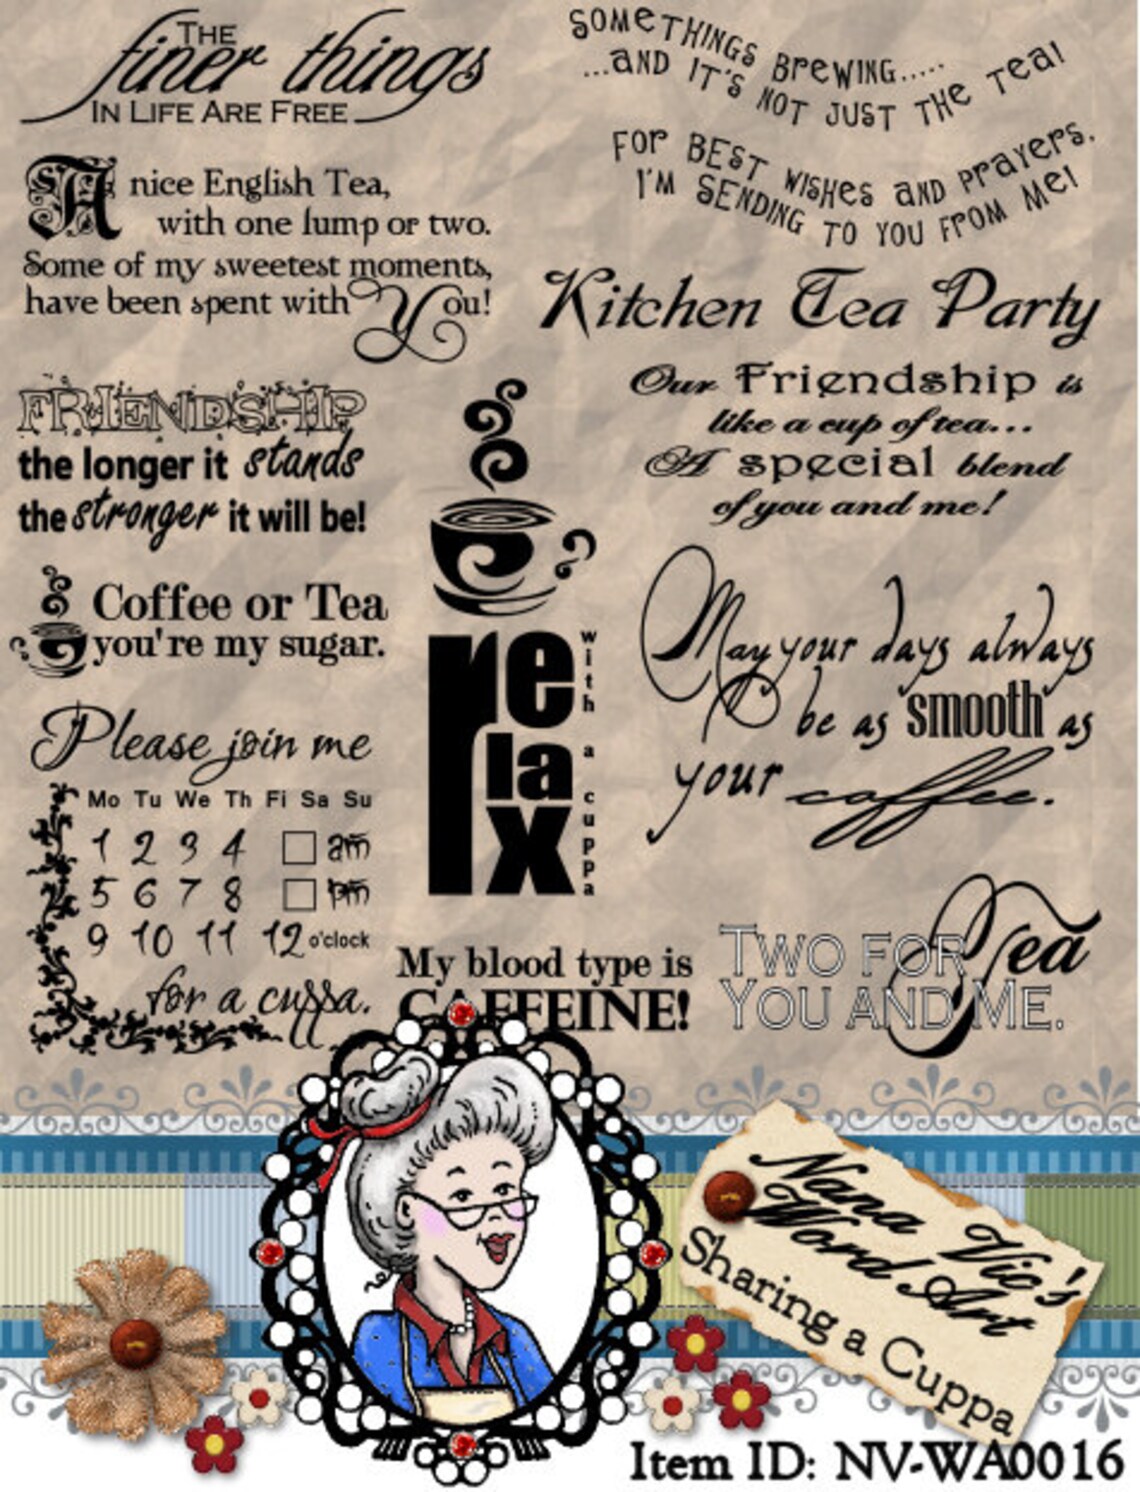 THE
finer things
IN LIFE ARE FREE
SOMETHINGS BREWING.....
...AND IT'S NOT JUST THE TEA!
FOR BEST WISHES AND PRAYERS.
I'M SENDING TO YOU FROM ME!
A nice English Tea,
with one lump or two.
Some of my sweetest moments,
have been spent with You!
Kitchen Tea Party
Our Friendship is
like a cup of tea...
A special blend
of you and me!
FRIENDSHIP
the longer it stands
the stronger it will be!
Coffee or Tea
you're my sugar.
relax
with a cuppa
May your days always
be as smooth as
your coffee.
Please join me
Mo Tu We Th Fi Sa Su
1 2 3 4 am
5 6 7 8 pm
9 10 11 12 o'clock
for a cuppa.
My blood type is
CAFFEINE!
TWO FOR Tea
YOU AND ME.
Nana Vic's
Word Art
Sharing a Cuppa
Item ID: NV-WA0016